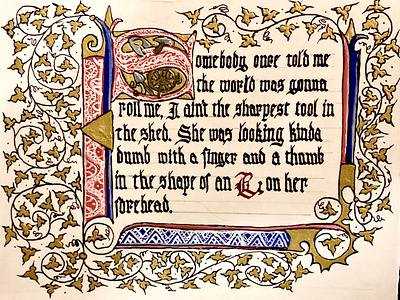 Somebody once told me
the world was gonna
roll me, I aint the sharpest tool in
the shed. She was looking kinda
dumb with a finger and a thumb
in the shape of an L on her
forehead.